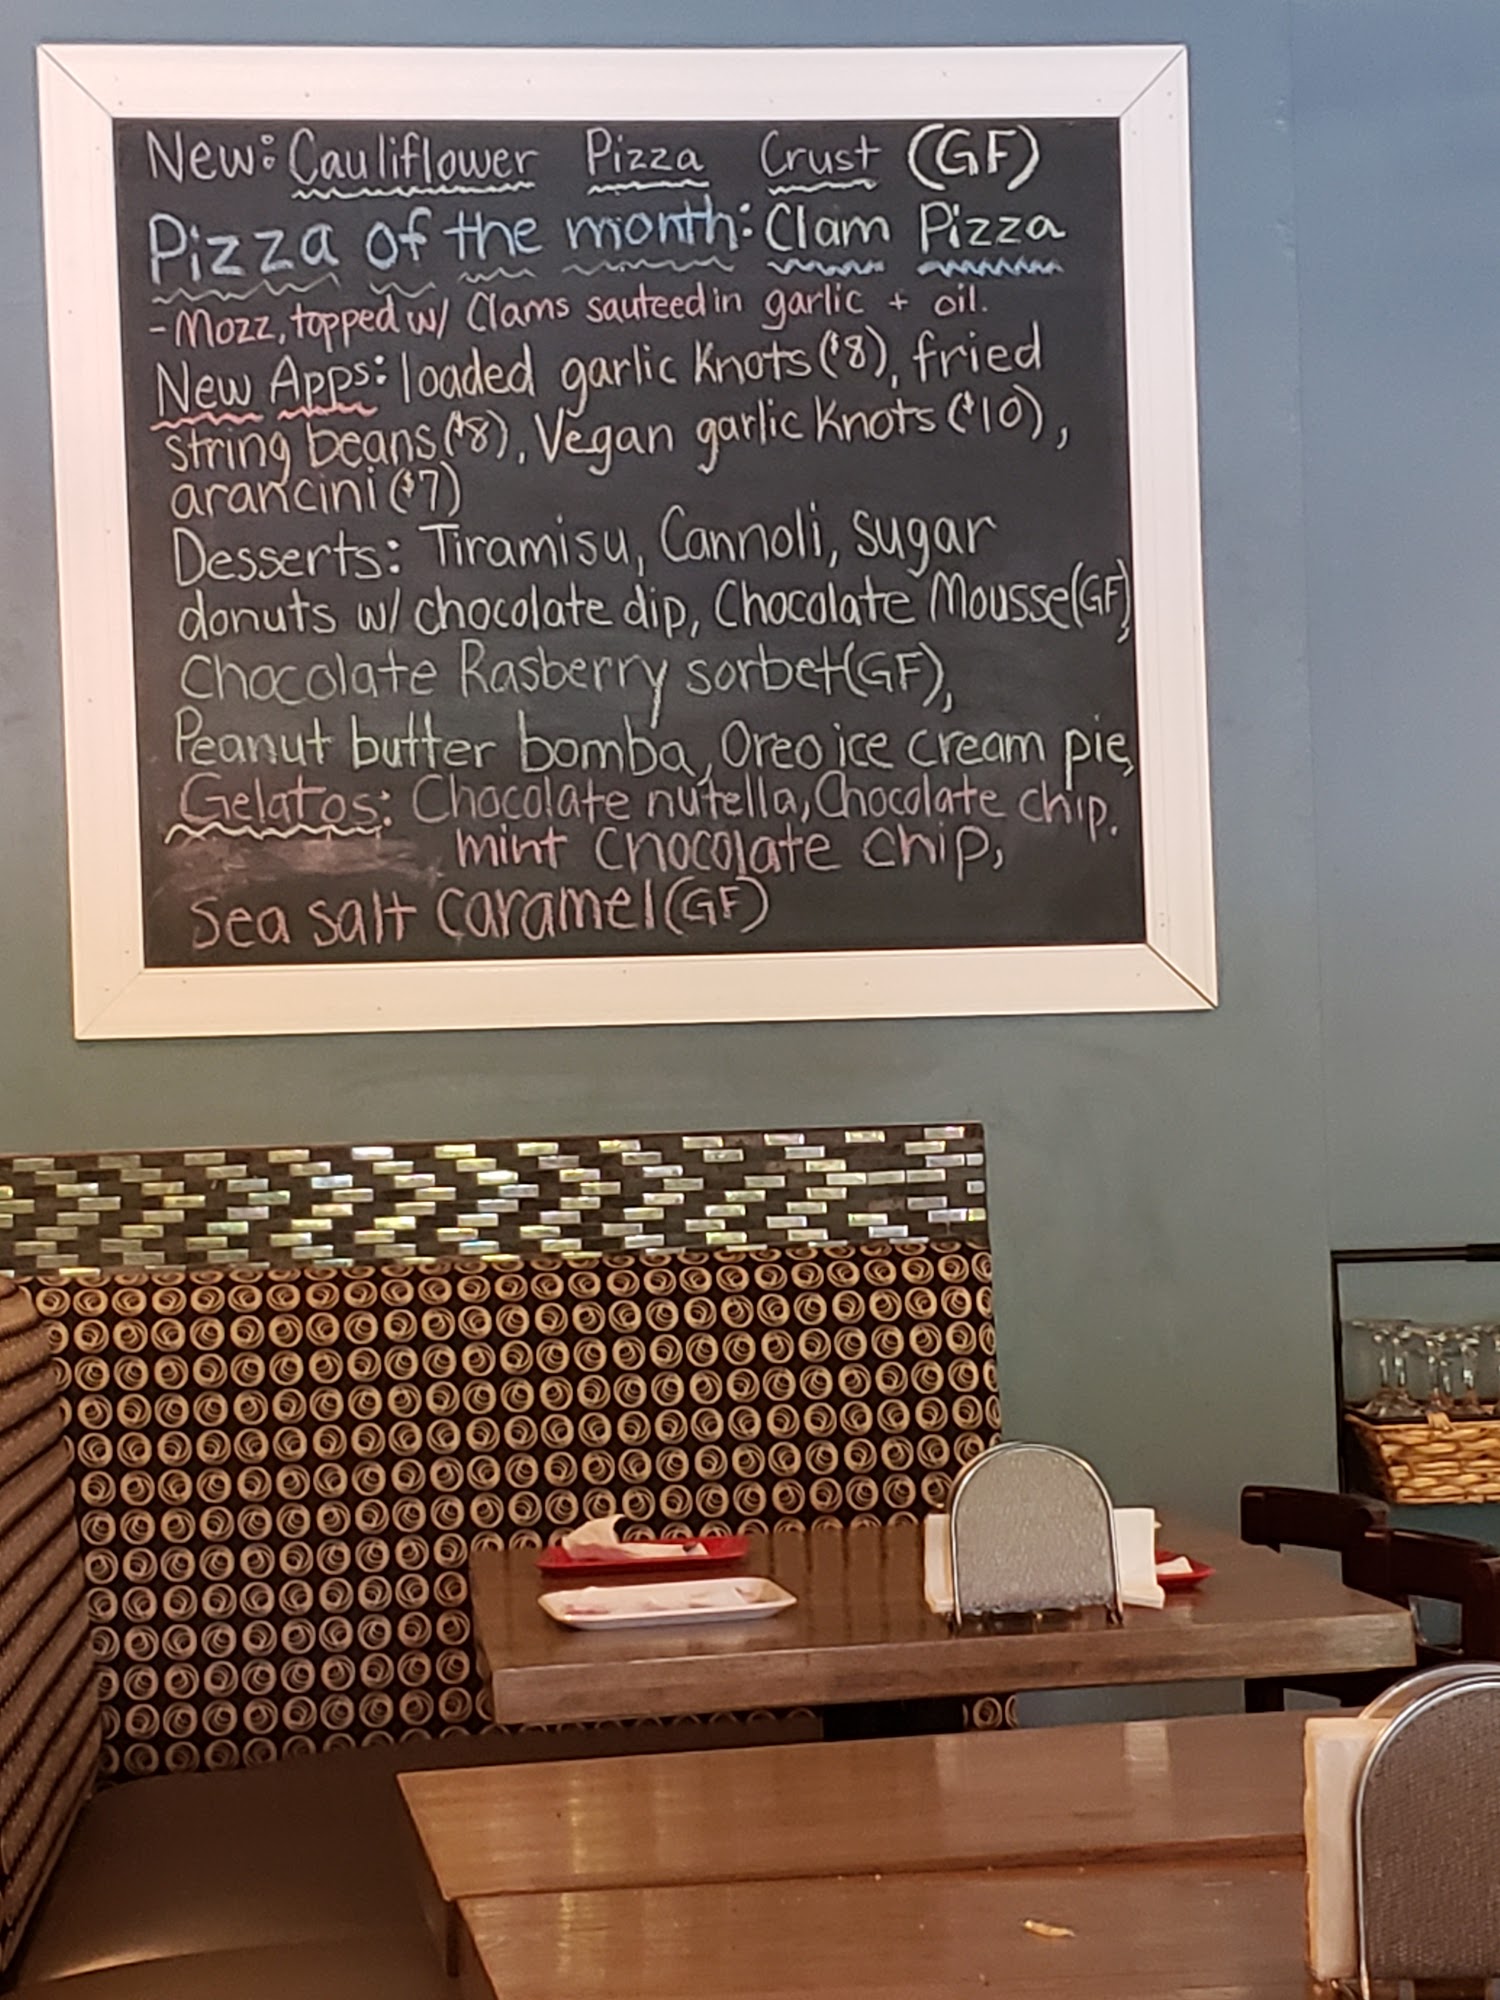 New: Cauliflower Pizza Crust (GF)
Pizza of the month: Clam Pizza
- Mozz, topped w/ Clams sauteed in garlic + oil.
New Apps: loaded garlic Knots ($8), fried
string beans ($8), Vegan garlic Knots ($10),
arancini ($7)
Desserts: Tiramisu, Cannoli, sugar
donuts w/ chocolate dip, Chocolate Mousse(GF),
Chocolate Rasberry sorbet(GF),
Peanut butter bomba, Oreo ice cream pie,
Gelatos: Chocolate nutella, Chocolate chip.
mint chocolate chip,
Sea salt caramel (GF)